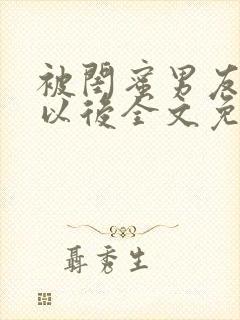 被閨蜜男友
以後全文免
聶秀生